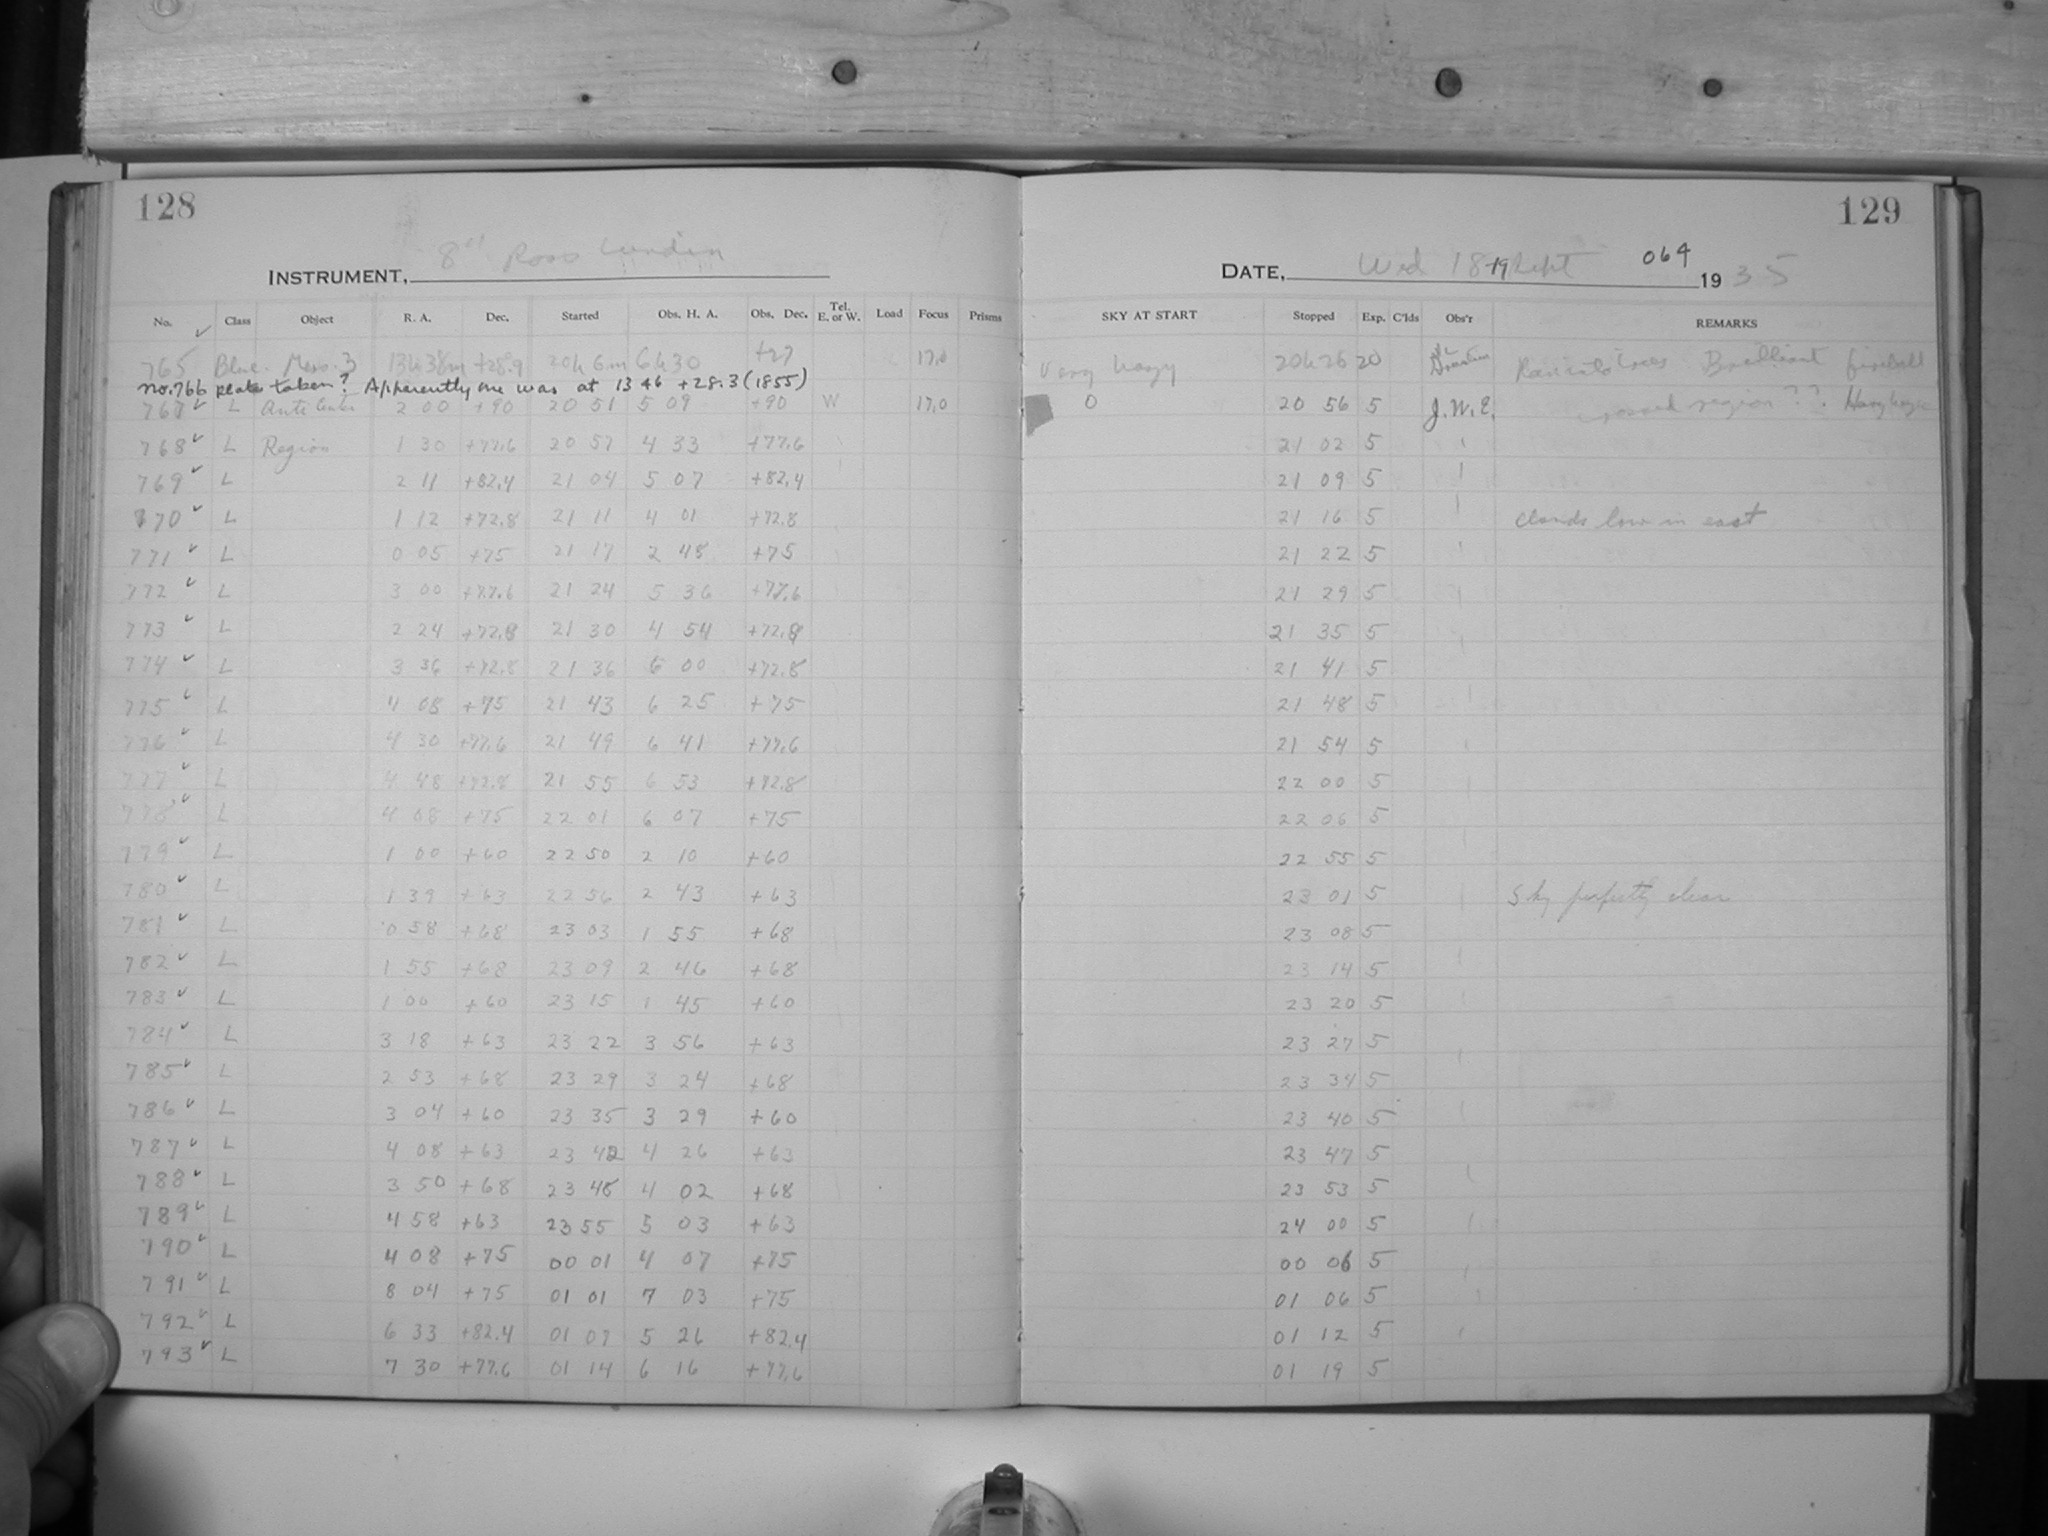 128
129
INSTRUMENT, 8" Ross Lundin
DATE, Wed 18+19 Sept 064 1935
No. Class Object R. A. Dec. Started Obs. H. A. Obs. Dec. Tel. E. or W. Load Focus Prisms SKY AT START Stopped Exp. C'lds Obs'r REMARKS
765 Blue Mess. 3 13h38m +28.9 20h 6m 6h30 +27 17.0 Very hazy 20h26 20 Brilliant fireball
No. 766 plate taken? Apparently one was at 13 46 +28.3 (1855)
767 L Anti Center 2 00 +90 20 51 5 09 +90 W 17.0 0 20 56 5 J.W.E. crossed region??
768 L Region 1 30 +77.6 20 57 4 33 +77.6 21 02 5
769 L 2 11 +82.4 21 04 5 07 +82.4 21 09 5
770 L 1 12 +72.8 21 11 4 01 +72.8 21 16 5 clouds low in east
771 L 0 05 +75 21 17 2 48 +75 21 22 5
772 L 3 00 +77.6 21 24 5 36 +77.6 21 29 5
773 L 2 24 +72.8 21 30 4 54 +72.8 21 35 5
774 L 3 36 +72.8 21 36 6 00 +72.8 21 41 5
775 L 4 08 +75 21 43 6 25 +75 21 48 5
776 L 4 30 +77.6 21 49 6 41 +77.6 21 54 5
777 L 4 48 +72.8 21 55 6 53 +72.8 22 00 5
778 L 4 08 +75 22 01 6 07 +75 22 06 5
779 L 1 00 +60 22 50 2 10 +60 22 55 5
780 L 1 39 +63 22 56 2 43 +63 23 01 5 Sky perfectly clear
781 L 0 58 +68 23 03 1 55 +68 23 08 5
782 L 1 55 +68 23 09 2 46 +68 23 14 5
783 L 1 00 +60 23 15 1 45 +60 23 20 5
784 L 3 18 +63 23 22 3 56 +63 23 27 5
785 L 2 53 +68 23 29 3 24 +68 23 34 5
786 L 3 04 +60 23 35 3 29 +60 23 40 5
787 L 4 08 +63 23 42 4 26 +63 23 47 5
788 L 3 50 +68 23 48 4 02 +68 23 53 5
789 L 4 58 +63 23 55 5 03 +63 24 00 5
790 L 4 08 +75 00 01 4 07 +75 00 06 5
791 L 8 04 +75 01 01 7 03 +75 01 06 5
792 L 6 33 +82.4 01 07 5 26 +82.4 01 12 5
793 L 7 30 +77.6 01 14 6 16 +77.6 01 19 5